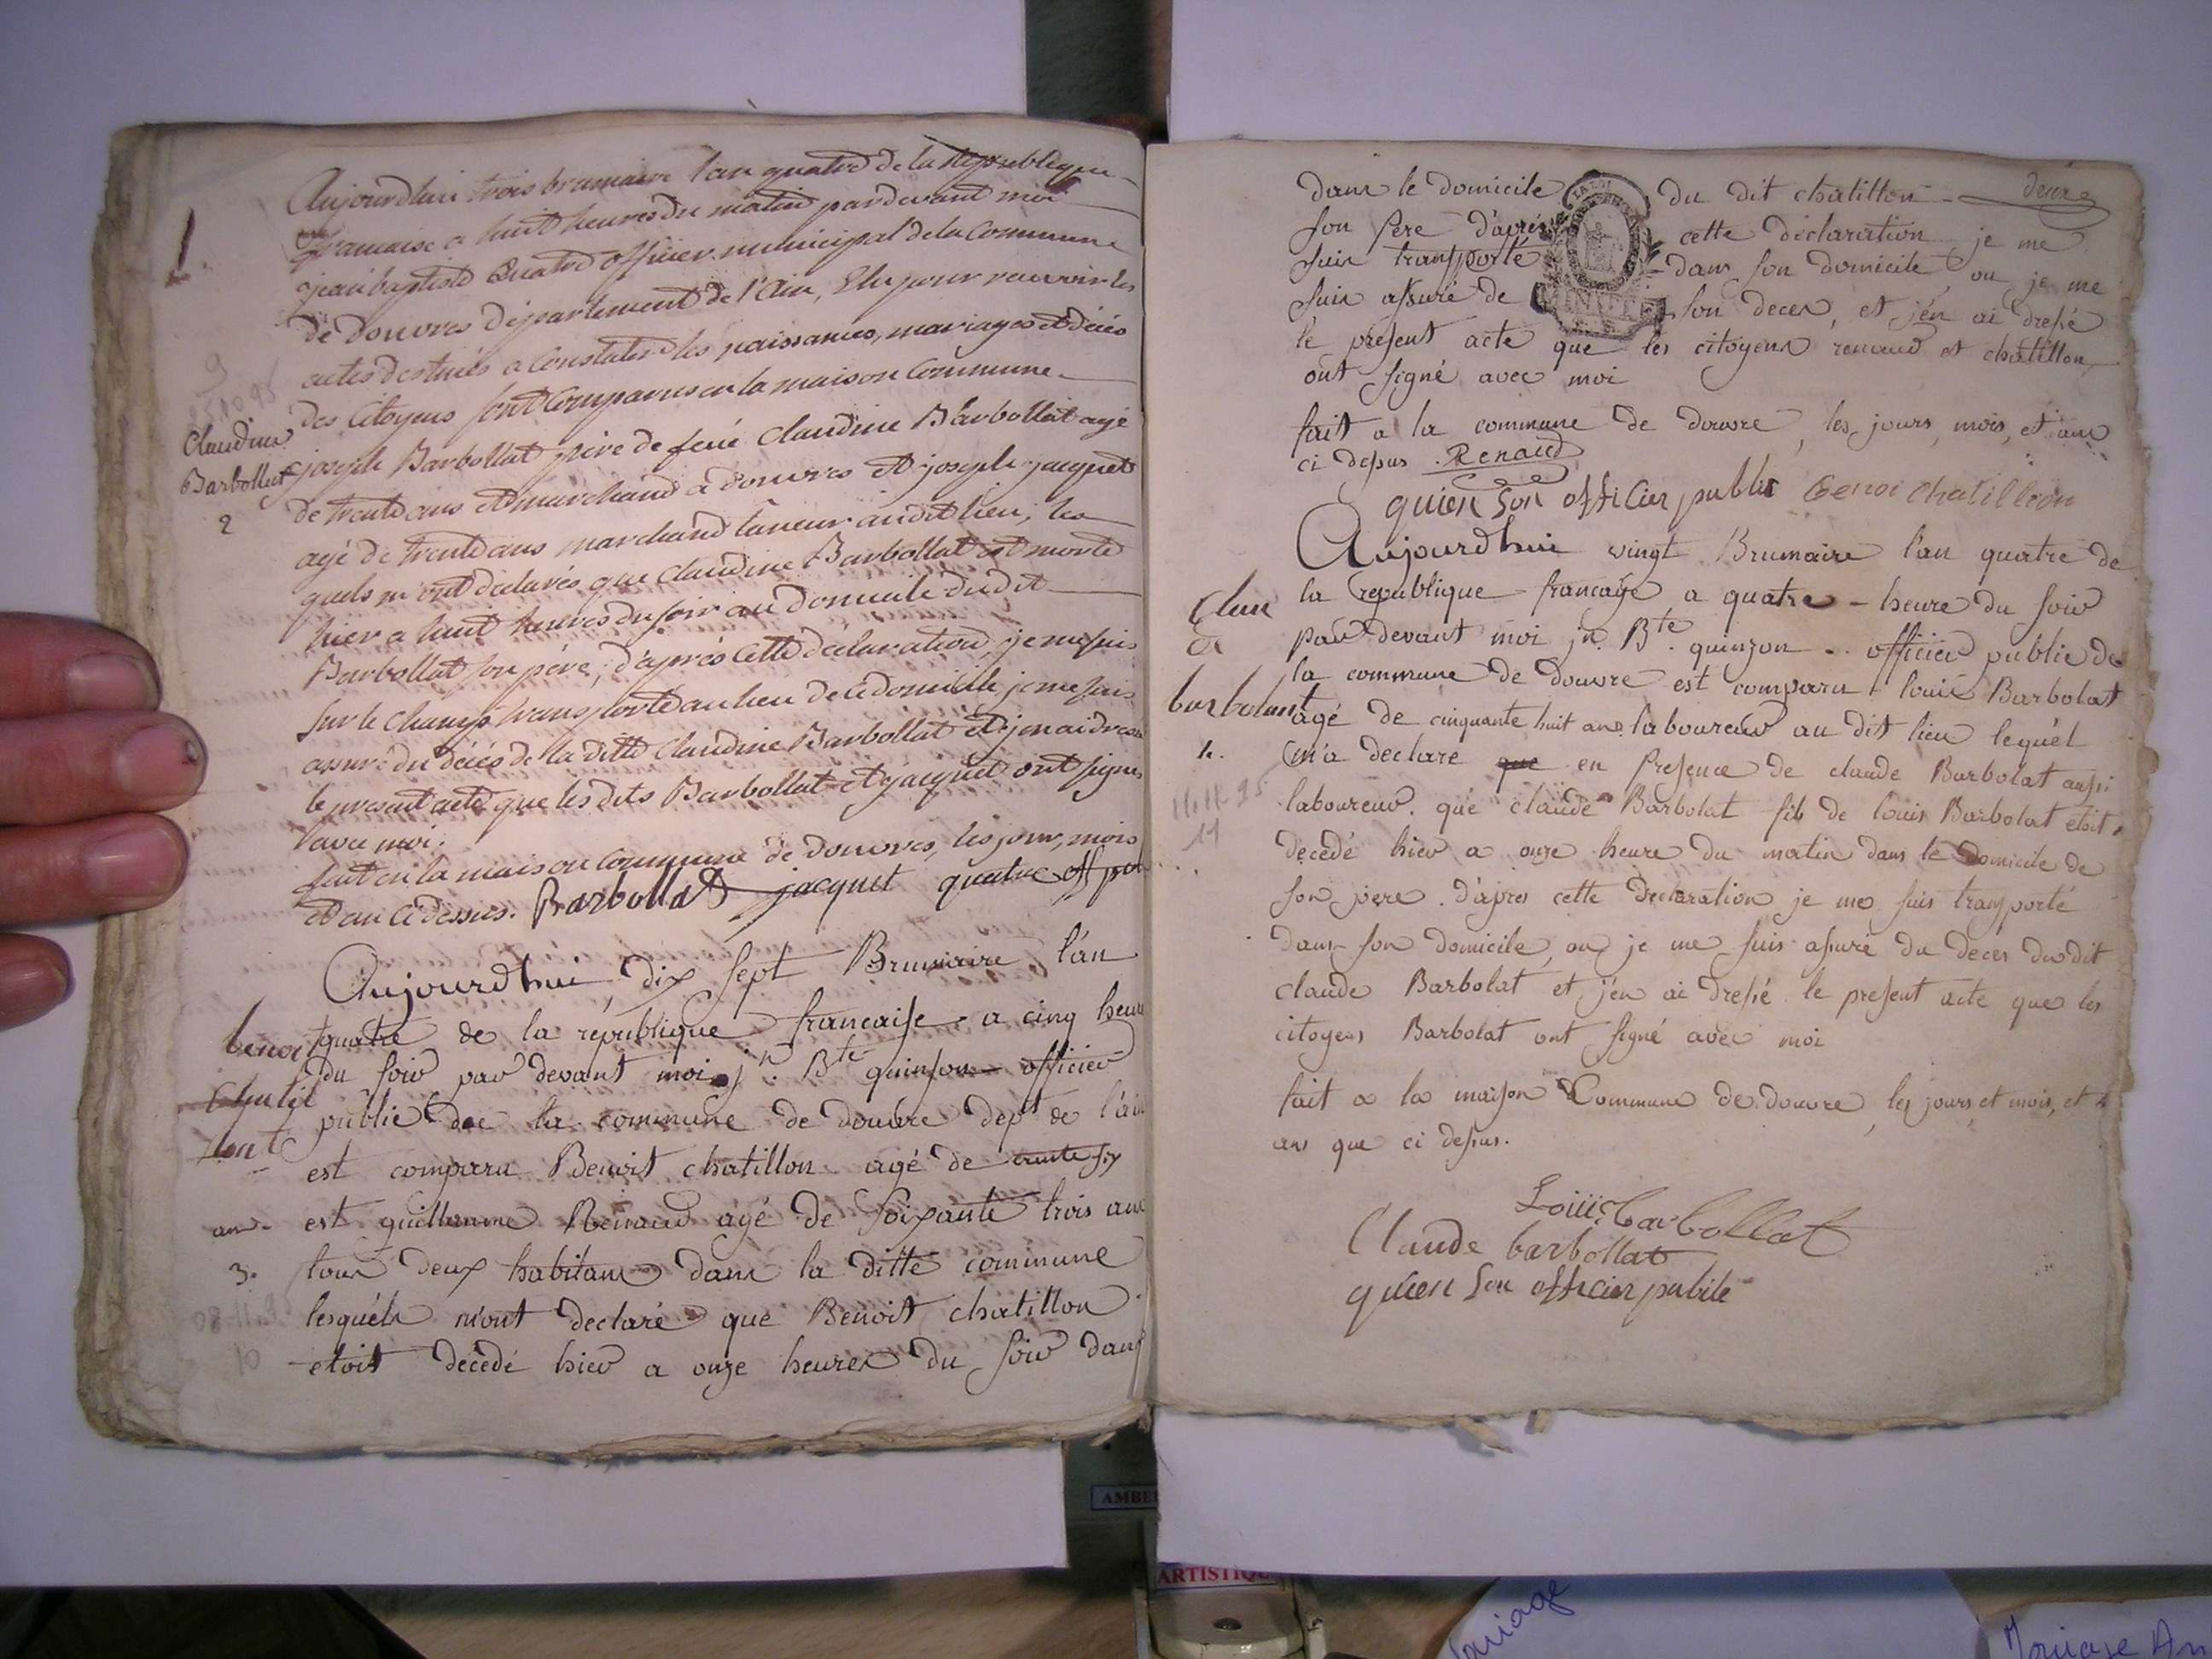 Aujourdhui trois brumaire l'an quatre de la Republique
francaise a huit heures du matin pardevant moi
jean baptiste Quatre officier municipal de la Commune
de douvres département de l'Ain, Elu pour recevoir les
actes destinés a Constater les naissances, mariages et décés
des Citoyens sont Comparus en la maison Commune
joseph Barbollat père de feue Claudine Barbollat agé
de trente ans et marchand a douvres et joseph jacquet
agé de trente ans marchand taneur audit lieu, les
quels m'ont déclarés que Claudine Barbollat est morte
hier a huit heures du soir au domicile dudit
Barbollat son père, d'après cette déclaration, je me suis
sur le champ transporté au lieu de ce domicile, je me suis
assuré du décés de la ditte Claudine Barbollat et j'en ai dressé
le present acte que les dits Barbollat et jacquet ont signés
avec moi.
fait en la maison Commune de douvres, les jour, mois
et an ci dessus. Barbollat jacquet quatre off pu
Claudine
Barbollat
2
Aujourdhui dix sept Brumaire l'an
quatre de la république francaise a cinq heure
du soir par devant moi jn. Bte quinson officier
public de la commune de douvre dept de l'ain
est comparu Benoit chatillon agé de trente six
ans est guillaume Renaud agé de soixante trois ans
tous deux habitans dans la ditte commune
lesquéls m'ont declaré que Benoit chatillon
etoit décedé hier a onze heures du soir dans
benoi
Chatil
lont
3.
10
deux
dans le domicile du dit chatillon
son Pere d'après cette déclaration je me
suis transporté dans son domicile ou je me
suis assuré de son deces, et j'en ai dressé
le présent acte que les citoyens renaud et chatillon
ont signé avec moi
fait a la commune de douvre, les jours, mois, et an
ci dessus Renaud
quien son officier public Benoi chatillon
Aujourdhui vingt Brumaire l'an quatre de
la republique francaise a quatre heure du soir
par devant moi jn. Bte. quinson officier public de
la commune de douvre est comparu louis Barbolat
agé de cinquante huit ans laboureur au dit lieu lequél
m'a declaré que en Presence de claude Barbolat aussi
laboureur. que claude Barbolat fils de louis Barbolat etoit
decedé hier a onze heure du matin dans le Domicile de
son pere. d'apres cette Declaration je me suis transporté
dans son domicile, ou je me suis assuré du deces dudit
claude Barbolat et j'en ai dressé le present acte que les
citoyens Barbolat ont signé avec moi
fait a la maison Commune de douvre, les jours et mois, et
ans que ci dessus.
Louis barbollat
Claude barbollat
quien son officier publie
Clau
de
barbolant
4.
11.11.95
11
AMBE
ARTISTIQU
Mariage
Mariage An